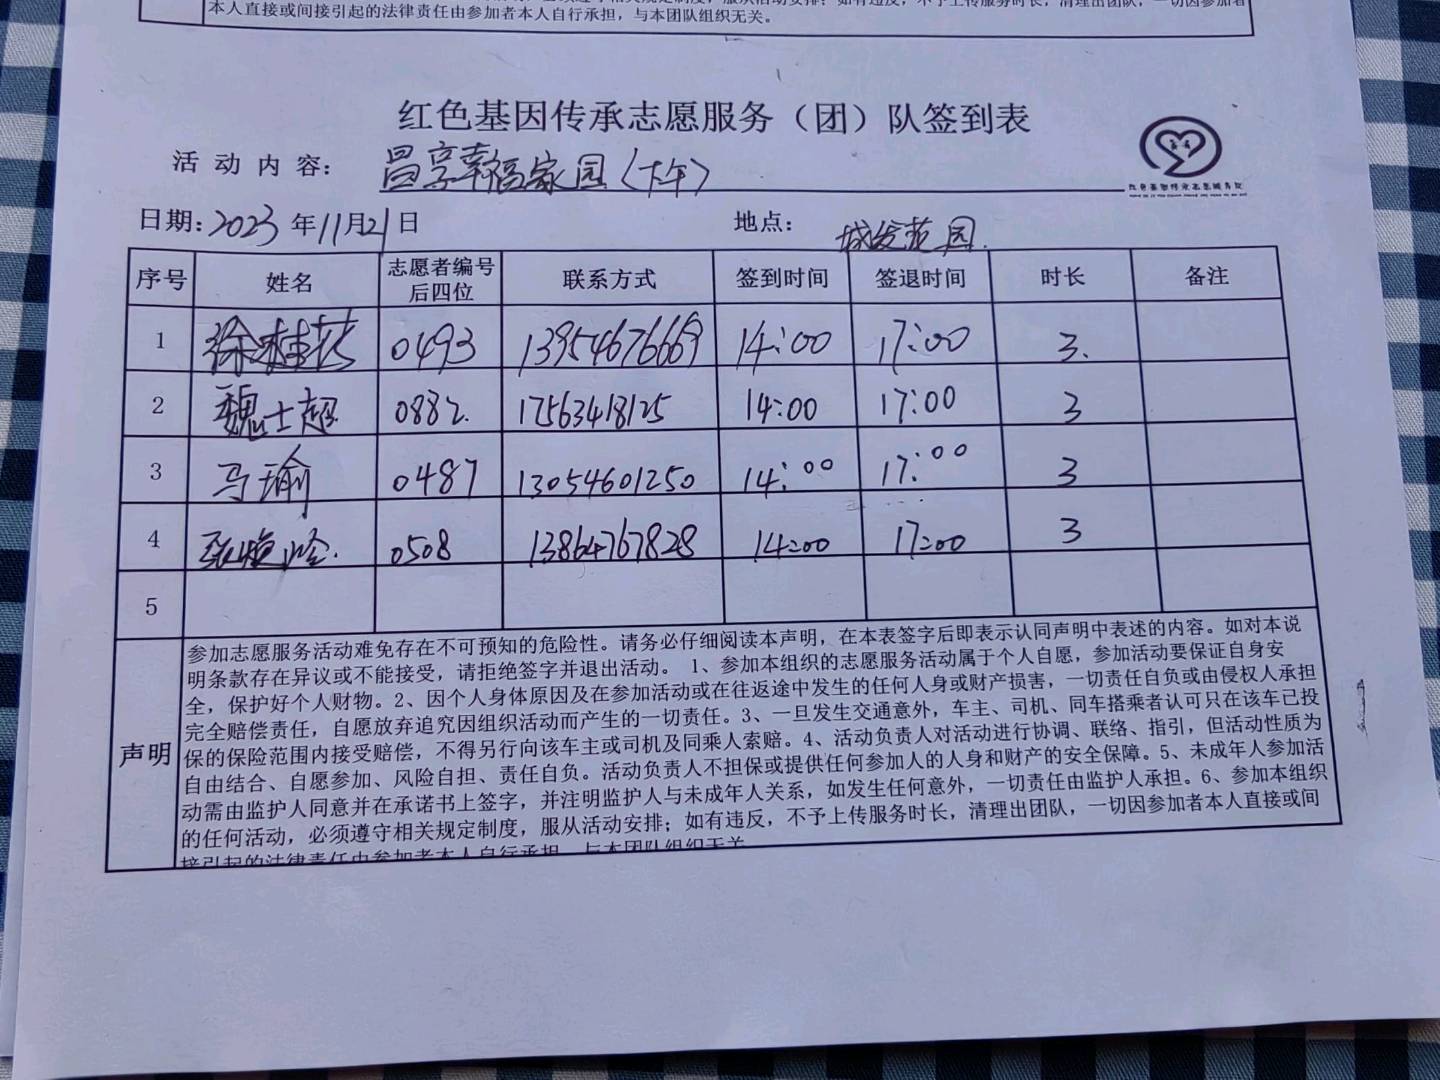 本人直接或间接引起的法律责任由参加者本人自行承担，与本团队组织无关。
红色基因传承志愿服务（团）队签到表
活动内容： 昌享幸福家园（下午）
日期：2023年11月21日 地点： 城发范园.
序号 姓名 志愿者编号后四位 联系方式 签到时间 签退时间 时长 备注
1 徐桂花 0493 13954676669 14:00 17:00 3.
2 魏士超 0882. 17563418125 14:00 17:00 3
3 马瑜 0487 13054601250 14:00 17:00 3
4 张 0508 13864767828 14:00 17:00 3
5
声明
参加志愿服务活动难免存在不可预知的危险性。请务必仔细阅读本声明，在本表签字后即表示认同声明中表述的内容。如对本说
明条款存在异议或不能接受，请拒绝签字并退出活动。 1、参加本组织的志愿服务活动属于个人自愿，参加活动要保证自身安
全，保护好个人财物。2、因个人身体原因及在参加活动或在往返途中发生的任何人身或财产损害，一切责任自负或由侵权人承担
完全赔偿责任，自愿放弃追究因组织活动而产生的一切责任。3、一旦发生交通意外，车主、司机、同车搭乘者认可只在该车已投
保的保险范围内接受赔偿，不得另行向该车主或司机及同乘人索赔。4、活动负责人对活动进行协调、联络、指引，但活动性质为
自由结合、自愿参加、风险自担、责任自负。活动负责人不担保或提供任何参加人的人身和财产的安全保障。5、未成年人参加活
动需由监护人同意并在承诺书上签字，并注明监护人与未成年人关系，如发生任何意外，一切责任由监护人承担。6、参加本组织
的任何活动，必须遵守相关规定制度，服从活动安排；如有违反，不予上传服务时长，清理出团队，一切因参加者本人直接或间
接引起的法律责任由参加者本人自行承担，与本团队组织无关